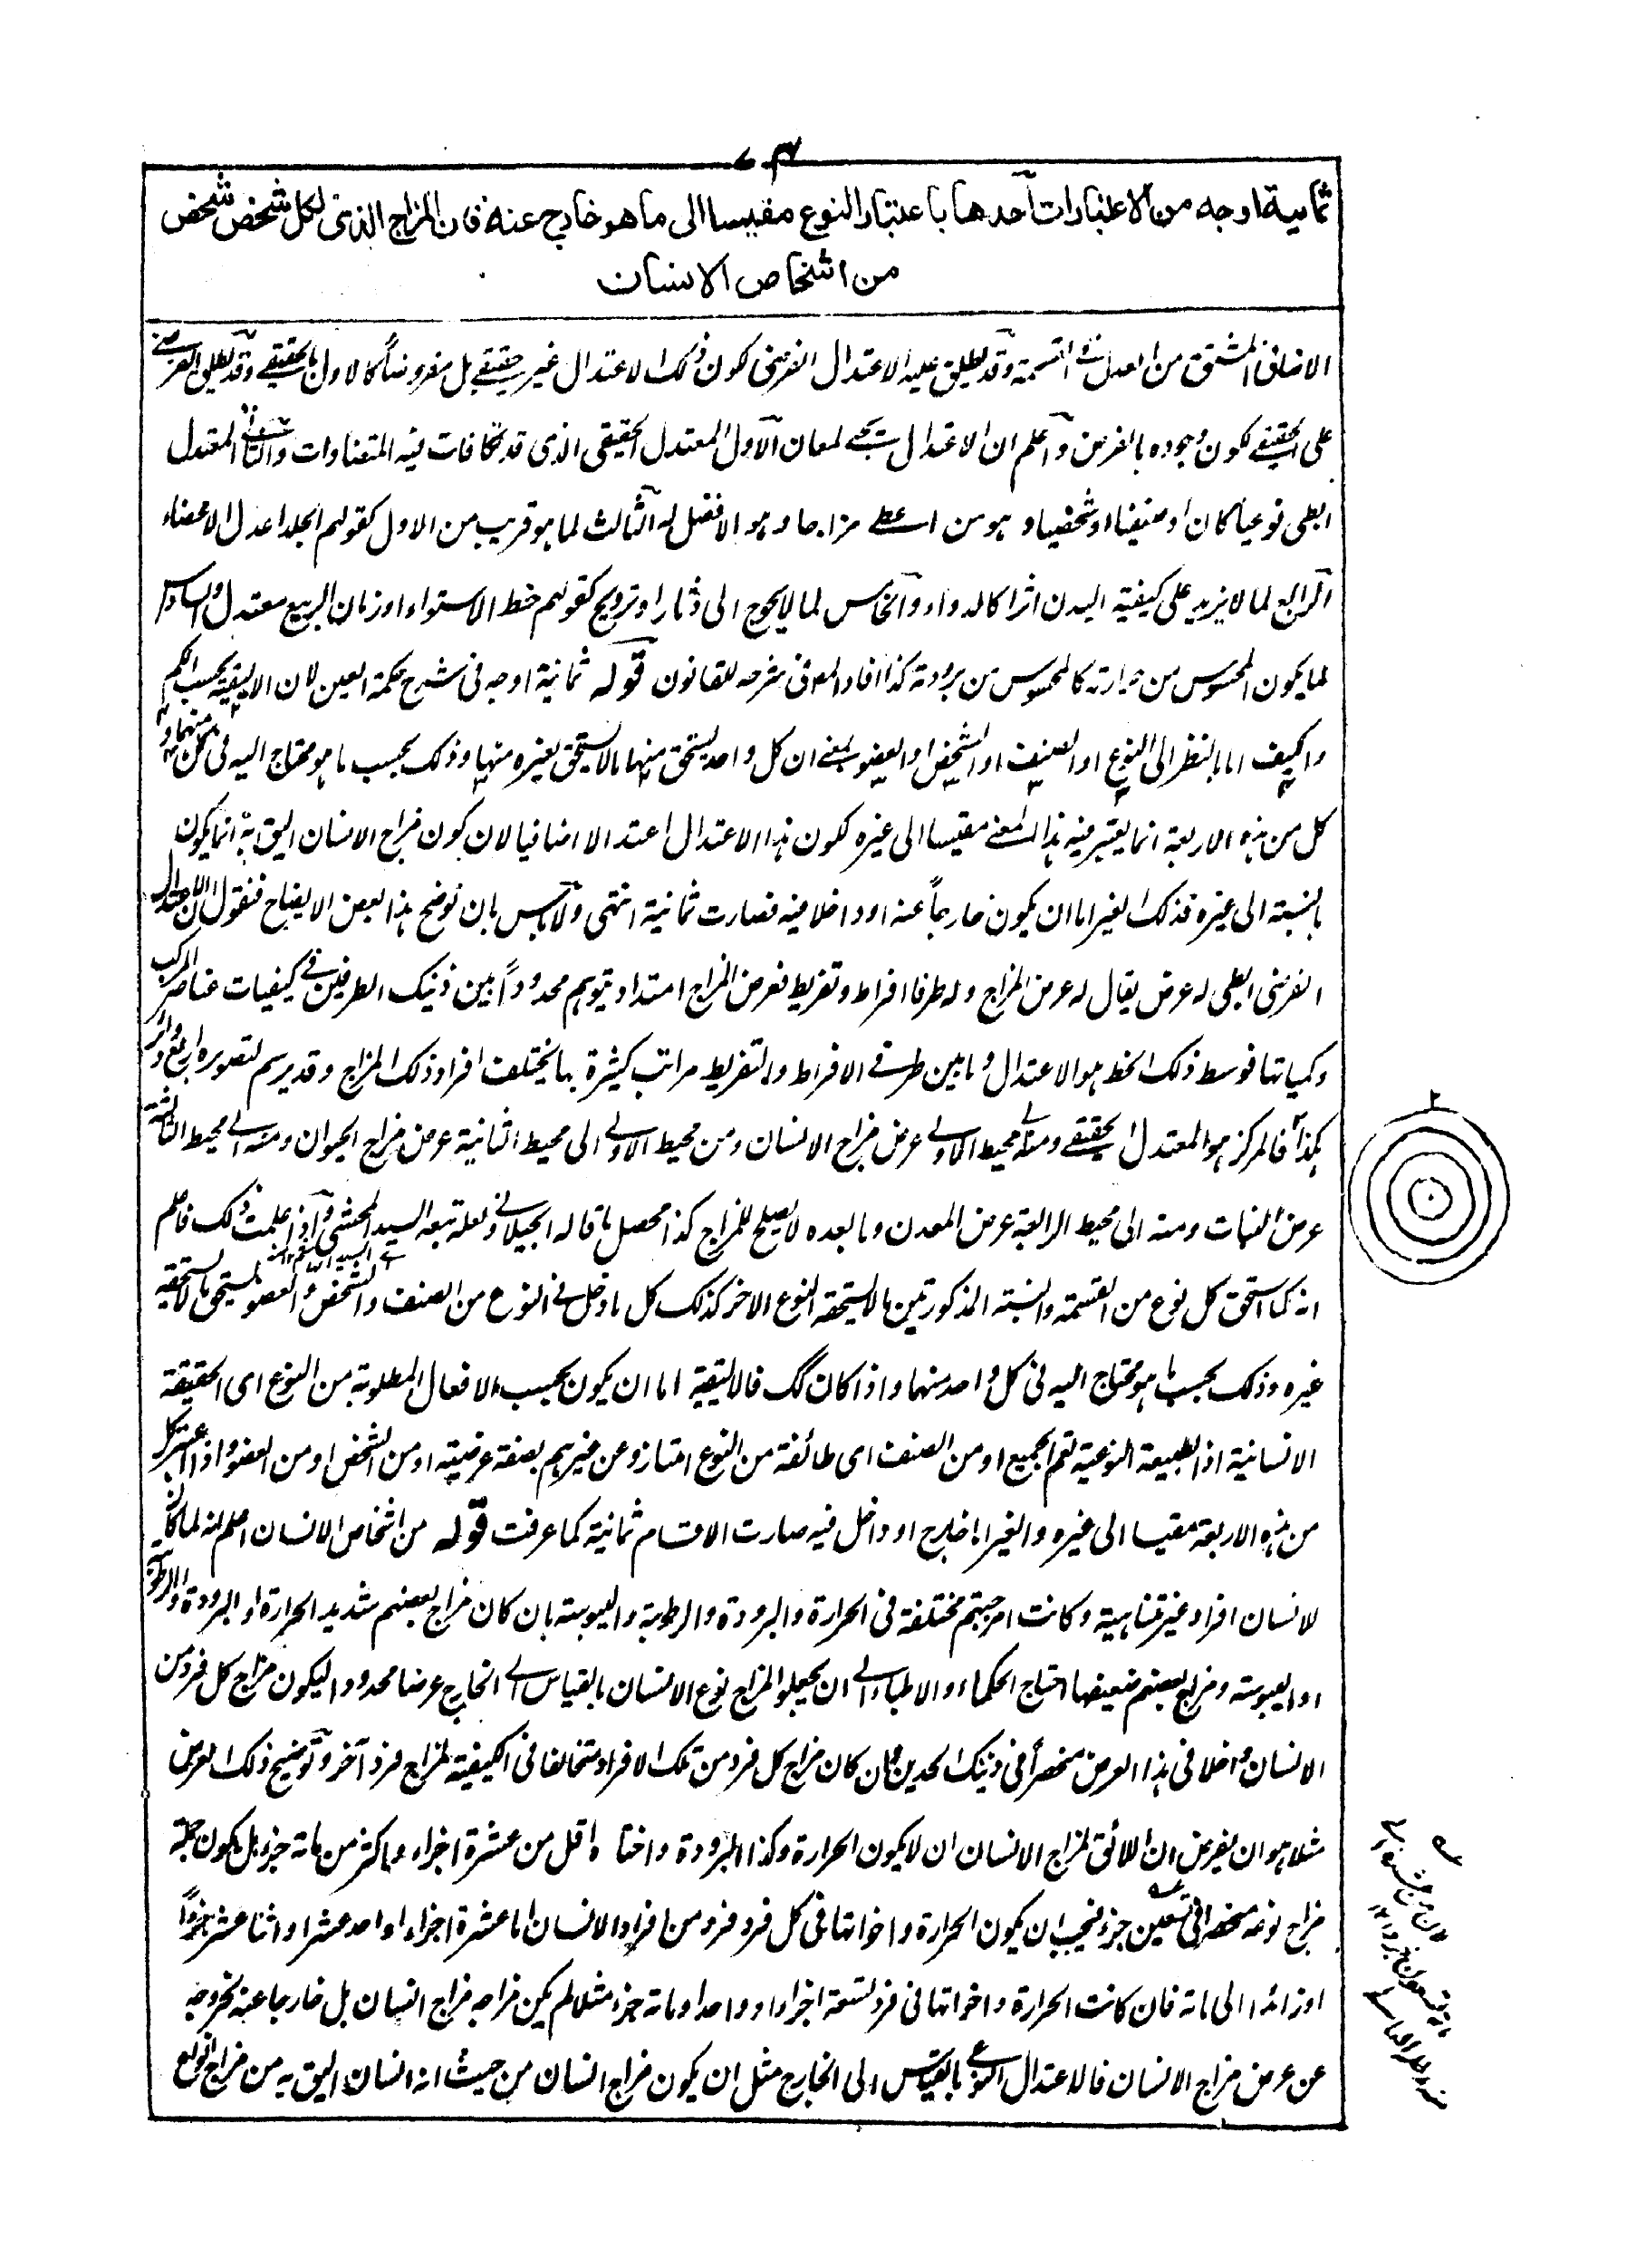 ثمانية اوجه من الاعتبارات آحدها باعتبار النوع مقيسا الى ما هو خارج عنه فان المزاج الذى لكل شخص شخص
من اشخاص الانسان
الاضافى المشتق من العدل فى القسمة وقد يطلق عليه الاعتدال الفرضى لكون ذلك الاعتدال غير حقيقے بل مفروضاً كالاول بالحقيقے وقد يطلق الفرضے
على الحقيقے لكون وجوده بالفرض وآعلم ان الاعتدال لمعان الآول المعتدل الحقيقى الذى قد تكافات فيه المتضادات والثانے المعتدل
الطبى نوعيا كان او صنفيا او شخصيا وهو من اعطے مزاجا وهو الافضل له الثالث لما هو قريب من الاول كقولهم الجلد اعدل الاعضاء
الرابع لما لا يزيد على كيفية البدن اثرا كالدواء والخامس لما لا يحوج الى دثار او ترويح كقولهم خط الاستواء او زمان الربيع معتدل والسادس
لما يكون المحسوس من حرارته كالمحسوس من برودته كذا افاد فى شرحه للقانون قوله ثمانية اوجه فى شرح حكمة العين لان الاليقية بحسب الكم
والكيف اما بالنظر الى النوع او الصنف او الشخص او العضو بمعنے ان كل واحد يستحق منها ما لا يستحق غيره منها وذلك بحسب ما هو محتاج اليه فى كل منها و
كل من هذه الاربعة انما يعتبر فيه هذا المعنے مقيسا الى غيره لكون هذا الاعتدال اعتدالا اضافيا لان كون مزاج الانسان اليق به انما يكون
بالنسبة الى غيره فذلك الغير اما ان يكون خارجاً عنه او داخلا فيه فصارت ثمانية انتهى ولا باس بان نوضح هذا بعض الايضاح فنقول ان الاعتدال
الفرضى الطبى له عرض يقال له عرض المزاج وله طرفا افراط وتفريط فعرض المزاج امتداد يتوهم محدوداً بين ذينك الطرفين فے كيفيات عناصر المركب
وكمياتها فوسط ذلك الخط هو الاعتدال وما بين طرفے الافراط والتفريط مراتب كثيرة بها يختلف افراد ذلك المزاج وقد يرسم لتصويره اربع دوائر
هكذا فالمركز هو المعتدل الحقيقے ومنه الے محيط الاولے عرض مزاج الانسان ومن محيط الاولے الى محيط الثانية عرض مزاج الحيوان ومنه الے محيط الثالثة
عرض النبات ومنه الى محيط الرابعة عرض المعدن وما بعده لا يصلح للمزاج كذا محصل ما قاله الجيلانے ولعله تبعه السيد المحشى وآذا علمت ذلك فاعلم
انه كما استحق كل نوع من القسمة والنسبة المذكورتين ما لا يستحقه النوع الاخر كذلك كل ما دخل فى النوع من الصنف والشخص والعضو يستحق ما لا يستحقه
غيره وذلك بحسب ما هو محتاج اليه فى كل واحد منها واذا كان كك فالاليقية اما ان يكون بحسب الافعال المطلوبة من النوع اى الحقيقة
الانسانية اذ الطبيعة النوعية تعم الجميع او من الصنف اى طائفة من النوع امتازوا عن غيرهم بصفة عرضية او من الشخص او من العضو واذا اعتبر كل
من هذه الاربعة مقيسا الى غيره والغير اما خارج او داخل فيه صارت الاقسام ثمانية كما عرفت قوله من اشخاص الانسان اعلم انه لما كان
للانسان افراد غير متناهية وكانت امزجتهم مختلفة فى الحرارة والبرودة والرطوبة واليبوسة بان كان مزاج بعضهم شديد الحرارة او البرودة او الرطوبة
او اليبوسة ومزاج بعضهم ضعيفها احتاج الحكماء والاطباء الے ان يجعلوا المزاج نوع الانسان بالقياس الے الخارج عرضا محدودا ليكون مزاج كل فرد من
الانسان داخلا فى هذا العرض منحصراً فى ذينك الحدين وان كان مزاج كل فرد من تلك الافراد متخالفا فى الكيفية لمزاج فرد آخر وتوضيح ذلك العرض
مثلا هو ان يفرض ان اللائق لمزاج الانسان ان لا يكون الحرارة وكذا البرودة واختاه اقل من عشرة اجزاء ولا اكثر من مائة جزء بل يكون جملة
مزاج نوعه منحصرا فى تسعين جزء فيجب ان يكون الحرارة واخواتها فى كل فرد فرد من افراد الانسان اما عشرة اجزاء او احد عشر او اثنا عشر جزواً
او زائدا الى مائة فان كانت الحرارة واخواتها فى فرد تسعة اجزاء او واحدا ومائة جزء مثلا لم يكن مزاجه مزاج انسان بل خارجا عنه لخروجه
عن عرض مزاج الانسان فالاعتدال النوعے بالقياس الى الخارج مثل ان يكون مزاج انسان من حيث انه انسان اليق به من مزاج انواع